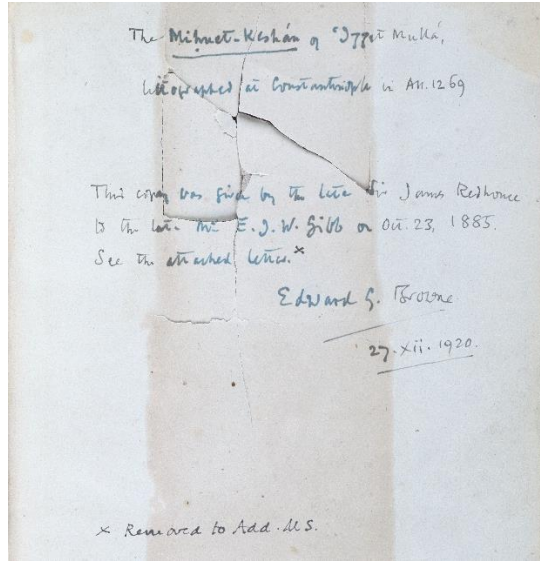 The Mihnet-Keshán of ʿIzzet Mullá,
lithographed at Constantinople in A.H. 1269
This copy was given by the late Sir James Redhouse
to the late Mr. E. J. W. Gibb on Oct. 23, 1885.
See the attached letter.×
Edward G. Browne
27. xii. 1920.
× Removed to Add. MS.